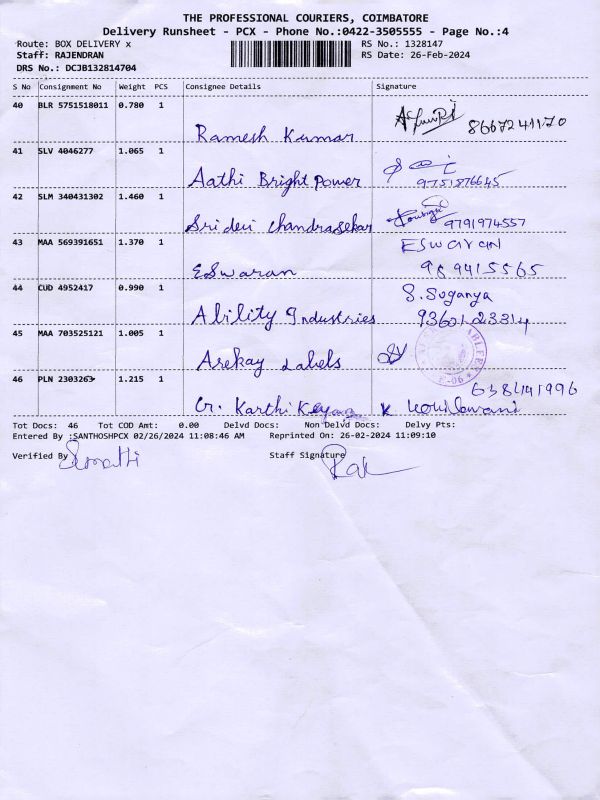 THE PROFESSIONAL COURIERS, COIMBATORE
Delivery Runsheet - PCX - Phone No.:0422-3505555 - Page No.:4
Route: BOX DELIVERY x RS No.: 1328147
Staff: RAJENDRAN RS Date: 26-Feb-2024
DRS No.: DCJB132814704
S No Consignment No Weight PCS Consignee Details Signature
40 BLR 5751518011 0.780 1
Ramesh Kumar 8667241170
41 SLV 4046277 1.065 1
Aathi Bright Power 9751876645
42 SLM 340431302 1.460 1
Sri devi Chandrasekar 9791974557
43 MAA 569391651 1.370 1 ESWARAN
Eswaran
44 CUD 4952417 0.990 1 S. Suganya
Ability Industries
45 MAA 703525121 1.005 1
Arekay Labels
46 PLN 2303263 1.215 1
G. Karthi Keyan
Tot Docs: 46 Tot COD Amt: 0.00 Delvd Docs: Non Delvd Docs: Delvy Pts:
Entered By :SANTHOSHPCX 02/26/2024 11:08:46 AM Reprinted On: 26-02-2024 11:09:10
Verified By Staff Signature